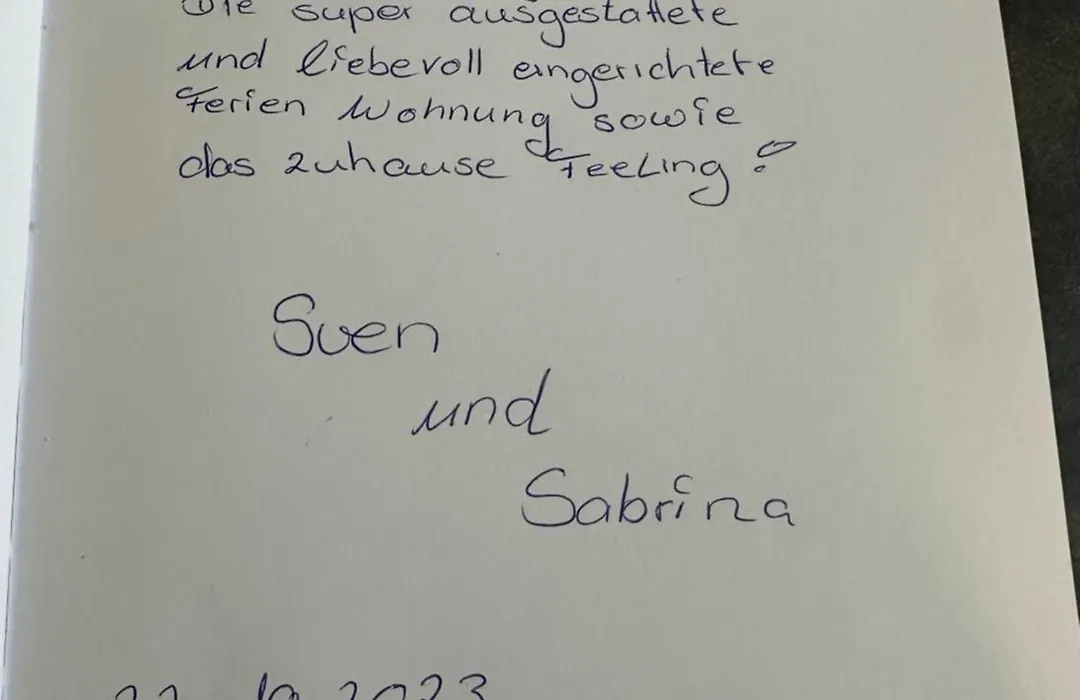 Die super ausgestattete
und liebevoll eingerichtete
Ferien Wohnung sowie
das zuhause Feeling!
Sven
und
Sabrina
2023